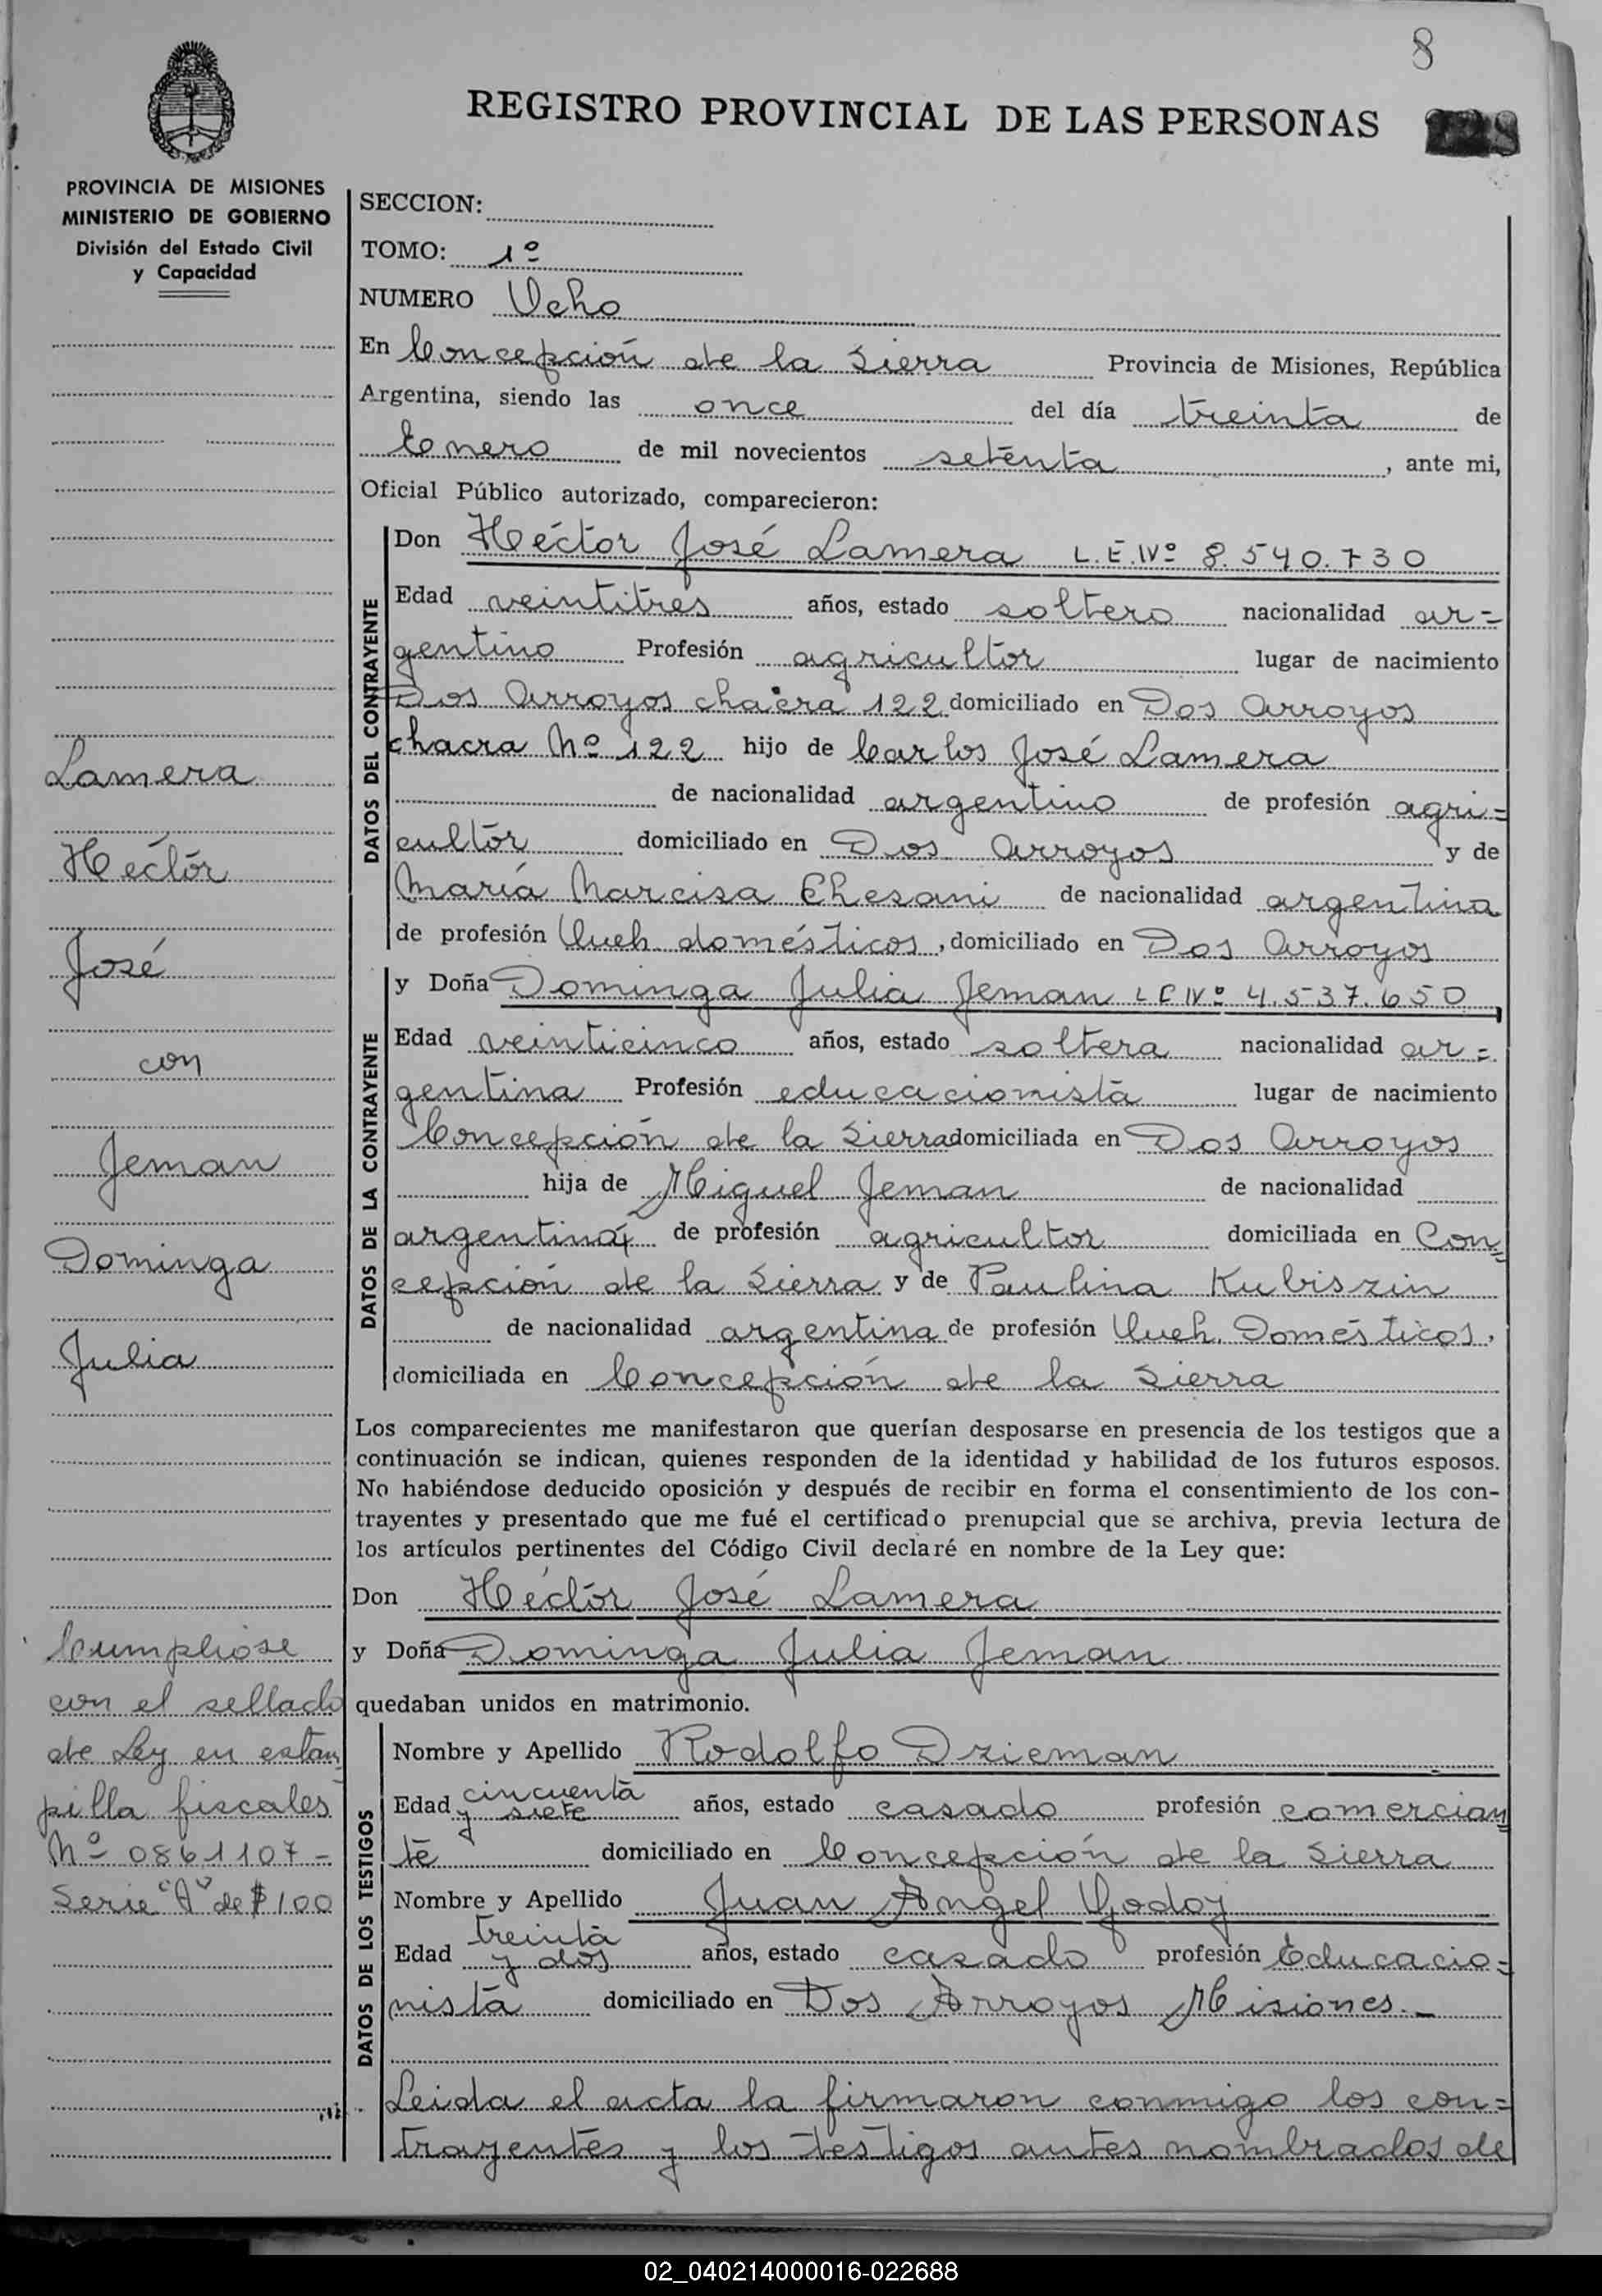 8
REGISTRO PROVINCIAL DE LAS PERSONAS
PROVINCIA DE MISIONES
MINISTERIO DE GOBIERNO
División del Estado Civil
y Capacidad
SECCION:
TOMO: 1º
NUMERO Ocho
En Concepción de la Sierra Provincia de Misiones, República
Argentina, siendo las once del día treinta de
Enero de mil novecientos setenta, ante mi,
Oficial Público autorizado, comparecieron:
DATOS DEL CONTRAYENTE
Don Héctor José Lamera L.E.Nº 8.540.730
Edad veintitres años, estado soltero nacionalidad ar=
gentino Profesión agricultor lugar de nacimiento
Dos Arroyos chacra 122 domiciliado en Dos Arroyos
chacra Nº 122 hijo de Carlos José Lamera
de nacionalidad argentino de profesión agri=
cultor domiciliado en Dos Arroyos y de
María Narcisa Chesani de nacionalidad argentina
de profesión Queh domésticos, domiciliado en Dos Arroyos
DATOS DE LA CONTRAYENTE
y Doña Dominga Julia Jeman L C Nº 4.537.650
Edad veinticinco años, estado soltera nacionalidad ar=
gentina Profesión educacionista lugar de nacimiento
Concepción de la Sierra domiciliada en Dos Arroyos
hija de Miguel Jeman de nacionalidad
argentina de profesión agricultor domiciliada en Con=
cepción de la Sierra y de Paulina Kubiszin
de nacionalidad argentina de profesión Queh. Domésticos,
domiciliada en Concepción de la Sierra
Los comparecientes me manifestaron que querían desposarse en presencia de los testigos que a
continuación se indican, quienes responden de la identidad y habilidad de los futuros esposos.
No habiéndose deducido oposición y después de recibir en forma el consentimiento de los con-
trayentes y presentado que me fué el certificado prenupcial que se archiva, previa lectura de
los artículos pertinentes del Código Civil declaré en nombre de la Ley que:
Don Héctor José Lamera
y Doña Dominga Julia Jeman
quedaban unidos en matrimonio.
DATOS DE LOS TESTIGOS
Nombre y Apellido Rodolfo Dzieman
Edad cincuenta y siete años, estado casado profesión comercian=
te domiciliado en Concepción de la Sierra
Nombre y Apellido Juan Angel Godoy
Edad treinta y dos años, estado casado profesión Educacio=
nista domiciliado en Dos Arroyos Misiones.-
Leida el acta la firmaron conmigo los con=
trayentes y los testigos antes nombrados de
Lamera
Hector
José
con
Jeman
Dominga
Julia
Cumpliose
con el sellado
de Ley en estam
pilla fiscales
Nº 0861107-
Serie "A" de $100
02_040214000016-022688